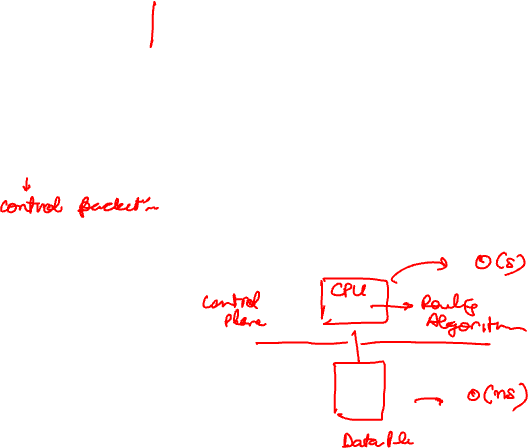 control packet
O(s)
CPU
control
plane
Routing
Algorithm
O(ns)
Data Pl